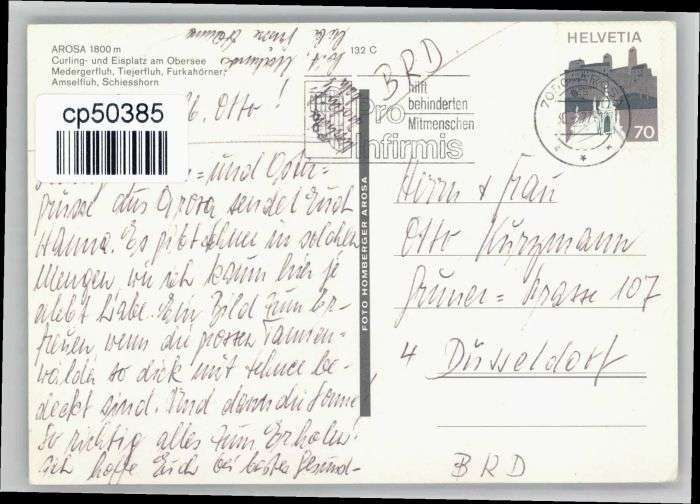 AROSA 1800 m
Curling- und Eisplatz am Obersee
Medergerfluh, Tiejerfluh, Furkahörner,
Amselfluh, Schiesshorn
132 C
cp50385
Otto!
= und Oster-
grüsse aus Arosa sendet Euch
Hanna. Es gibt Schnee in solchen
Mengen, wie ich kaum hier je
erlebt habe. Ein Bild zum Er-
freuen, wenn die grossen Tannen-
wälder so dick mit Schnee be-
deckt sind. Und dann die Sonne!
So richtig alles zum Erholen!
Ich hoffe Euch bei bester Gesund-
FOTO HOMBERGER AROSA
BRD
Pro
Infirmis
hilft
behinderten
Mitmenschen
HELVETIA
70
Herrn & Frau
Otto Kurzmann
Gruner=strasse 107
4 Düsseldorf
BRD